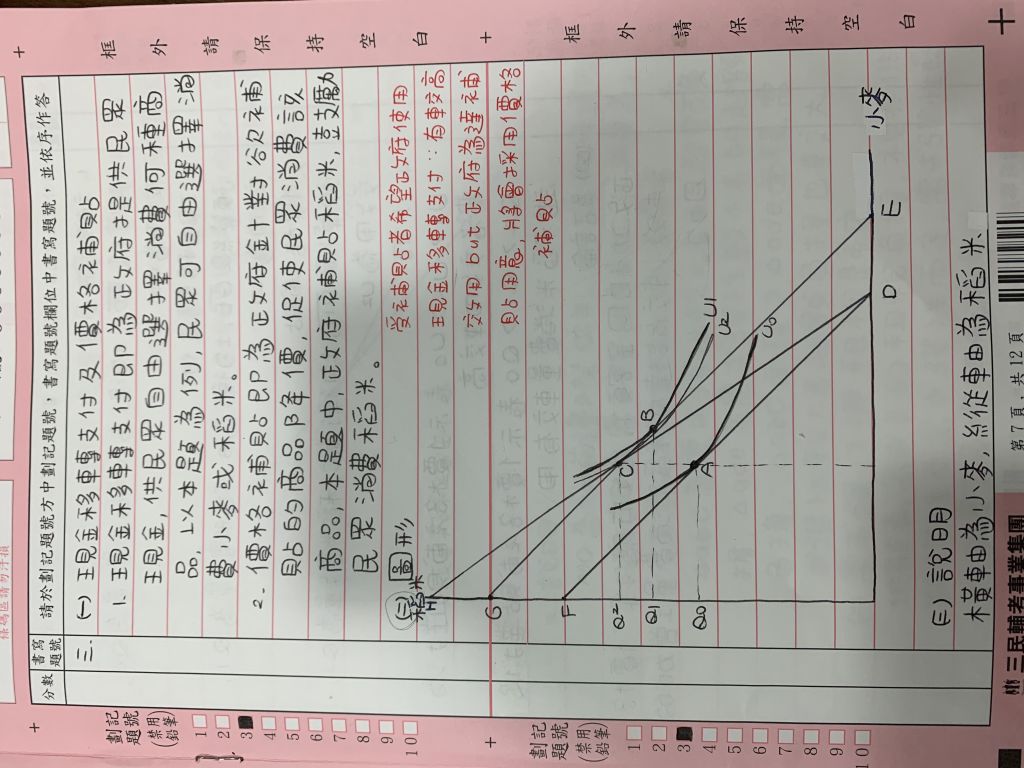 框外請保持空白
框外請保持空白
請於劃記題號方中劃記題號，書寫題號欄位中書寫題號，並依序作答
分數
書寫題號
劃記題號
(禁用鉛筆)
1
2
3
4
5
6
7
8
9
10
三.
(一)現金移轉支付及價格補貼
1. 現金移轉支付即為政府提供民眾
現金,供民眾自由選擇消費何種商
品,以本題為例,民眾可自由選擇消
費小麥或稻米。
2. 價格補貼即為政府針對欲補
貼的商品降價,促使民眾消費該
商品,本題中,政府補貼稻米,鼓勵
民眾消費稻米。
受補貼者希望政府使用
現金移轉支付∵有較高
效用 but 政府為達補
貼用意,將會採用價格
補貼
(二)圖形
稻米
H
G
F
Q2
Q1
Q0
C
B
A
U1
U2
U0
D
E
小麥
劃記題號
(禁用鉛筆)
1
2
3
4
5
6
7
8
9
10
(三)說明
橫軸為小麥,縱軸為稻米.
三民輔考事業集團
第7頁，共12頁